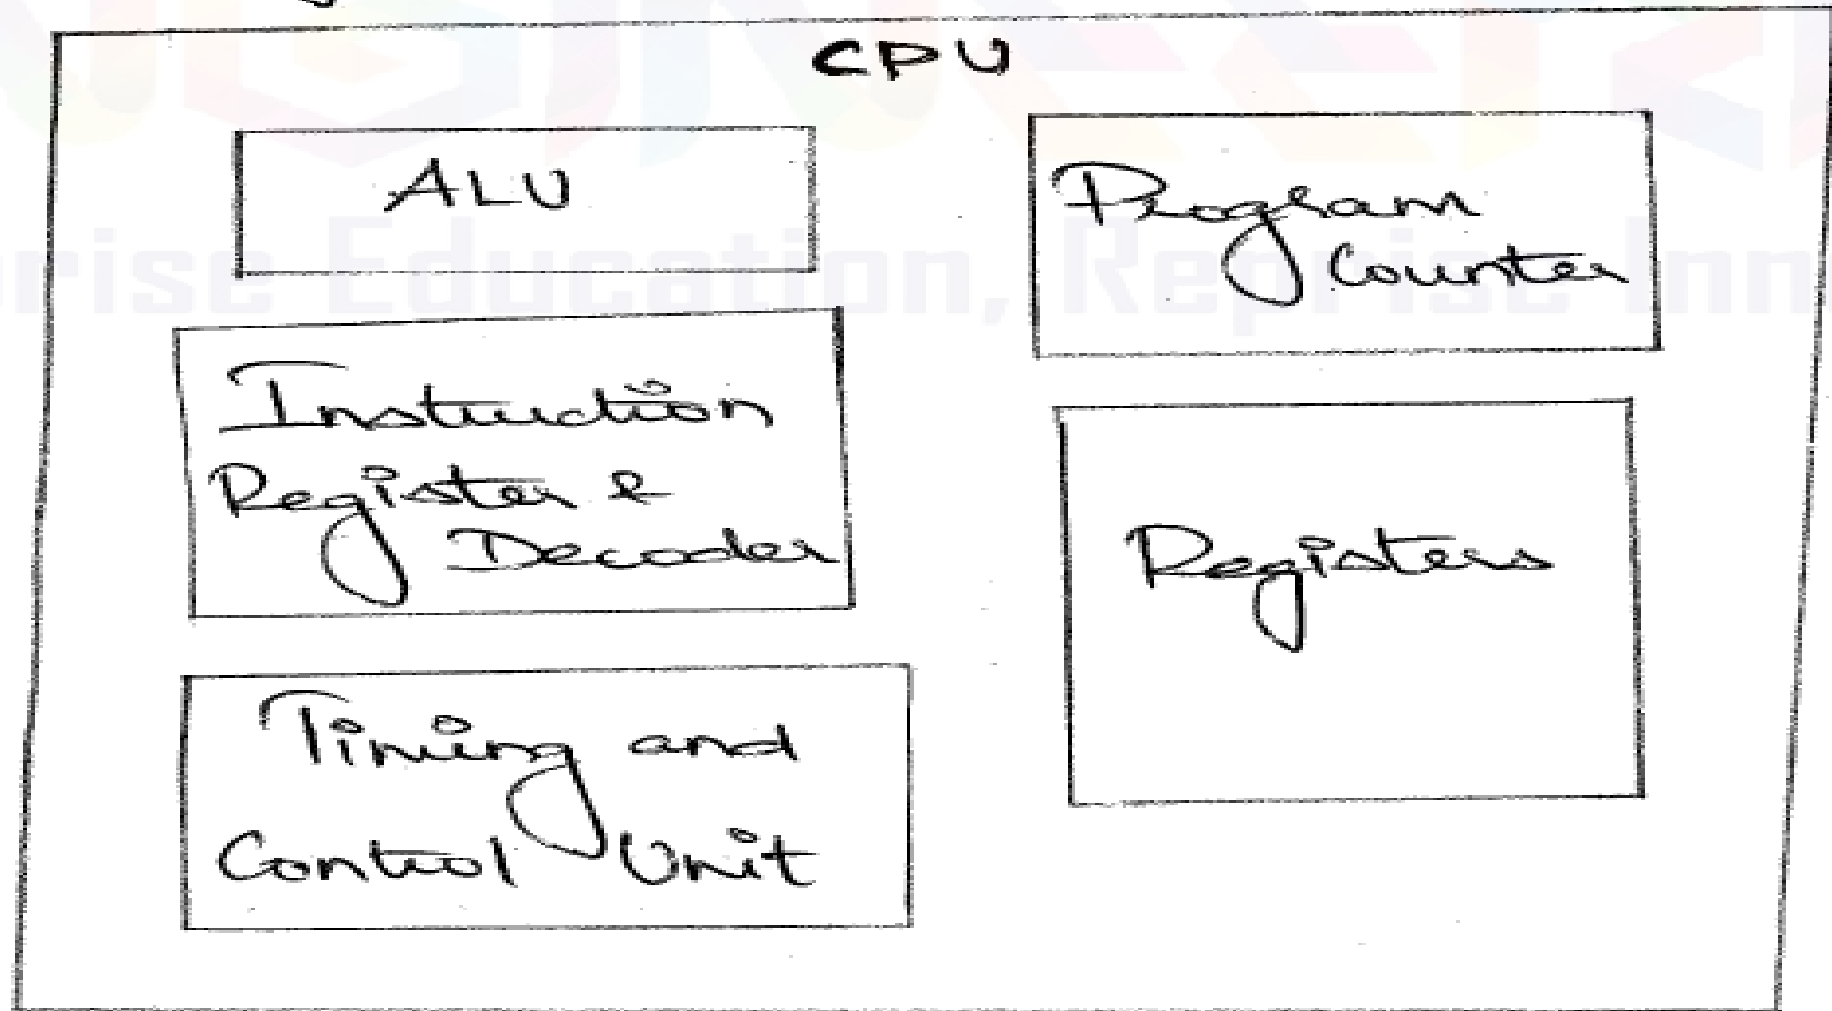 CPU
ALU
Program
Counter
Instruction
Register &
Decoder
Registers
Timing and
Control Unit
rise Education, Reprise Inn